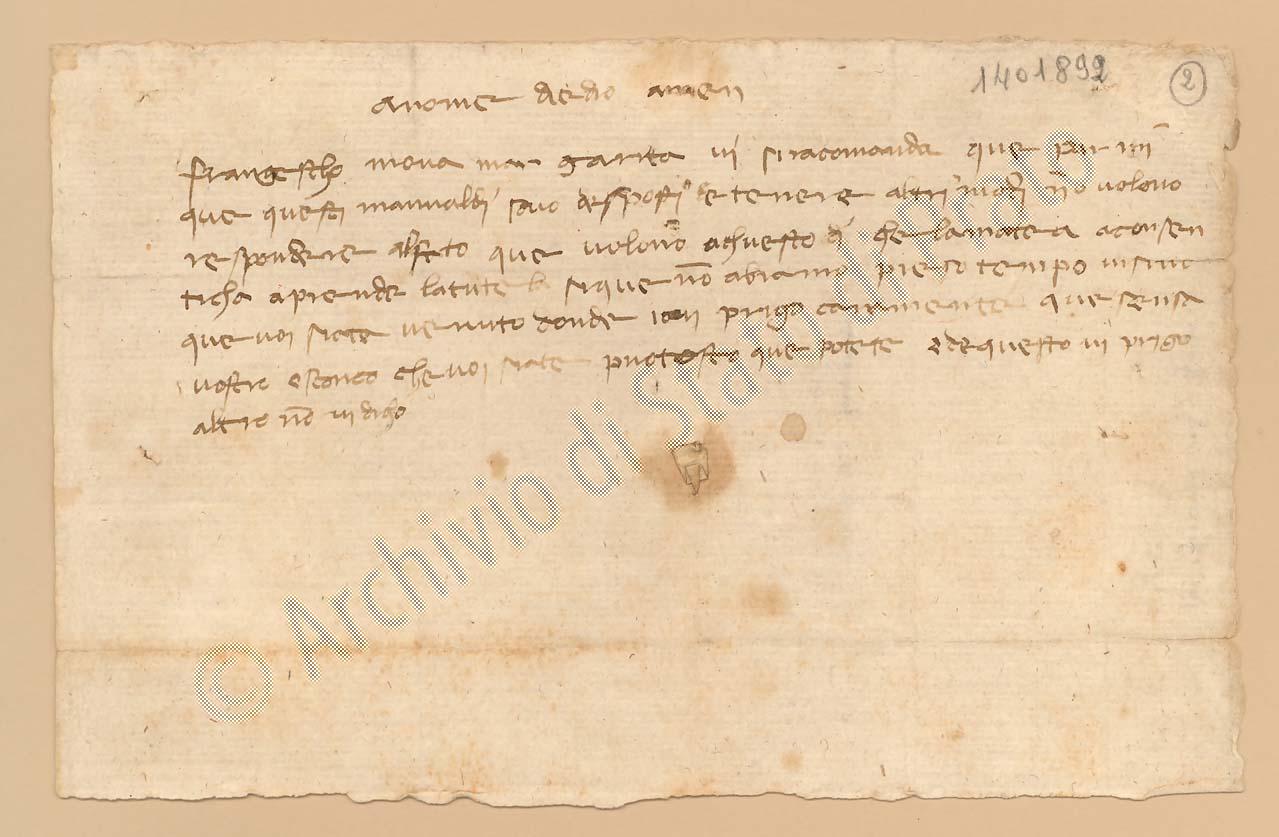 1401892
2
a nome de dio amen
francescho mona margarita vi si racomanda que per mi
que questi manuvaldi sono desposti de tenere altri modi no volono
respondere al fato que volono achuesto che la matera aconsen
ticha a prendere la tutela si que no abiamo perso tempo insino
que voi siate venuto donde io vi prigo caramente que sensa
vostro esconco che voi siate piu tosto que potete e de questo vi prigo
altro no vi dicho
© Archivio di Stato di Prato